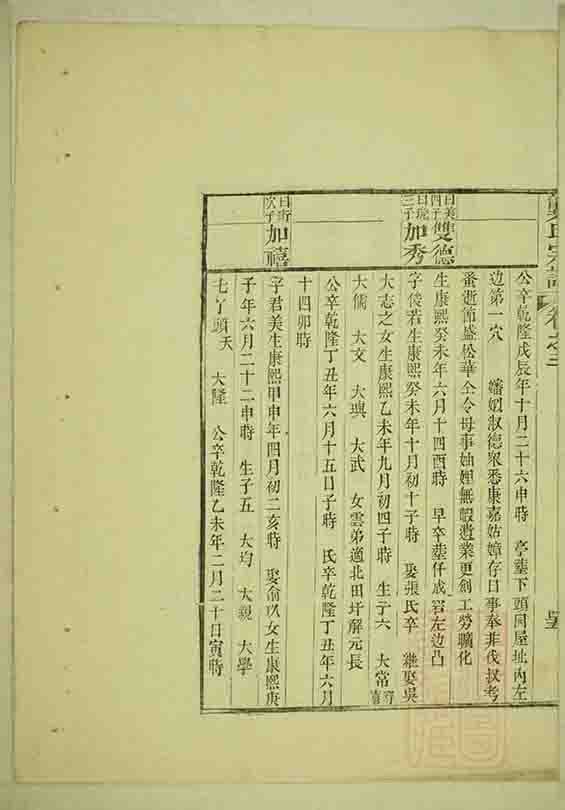 氏宗譜 卷之三
公卒乾隆戊辰年十月二十六申時 亭塟下頭同屋址內左
边第一穴 嬸嬺淑德衆悉康嘉姑嫜存日事奉非伐
蚤逝節盛松華仝令母事妯娌無暇遺業更創工勞曠化
曰美四子
雙德
生康熙癸未年六月十四酉時 早卒塟仟成宕左边凸
曰琥三子
加秀
字俊若生康熙癸未年十月初十子時 娶張氏卒 繼娶吳
大志之女生康熙乙未年九月初四子時 生子六 大常
大儒 大文 大興 大武 女雲弟適北田圩解元長
公卒乾隆丁丑年六月十五日子時 氏卒乾隆丁丑年六月
十四卯時
次子
加禧
字君美生康熙甲申年四月初二亥時 娶俞 女生康熙庚
子年六月二十二申時 生子五 大均 大親 大學
七丫頭夭 大隆 公卒乾隆乙未年二月二十日寅時